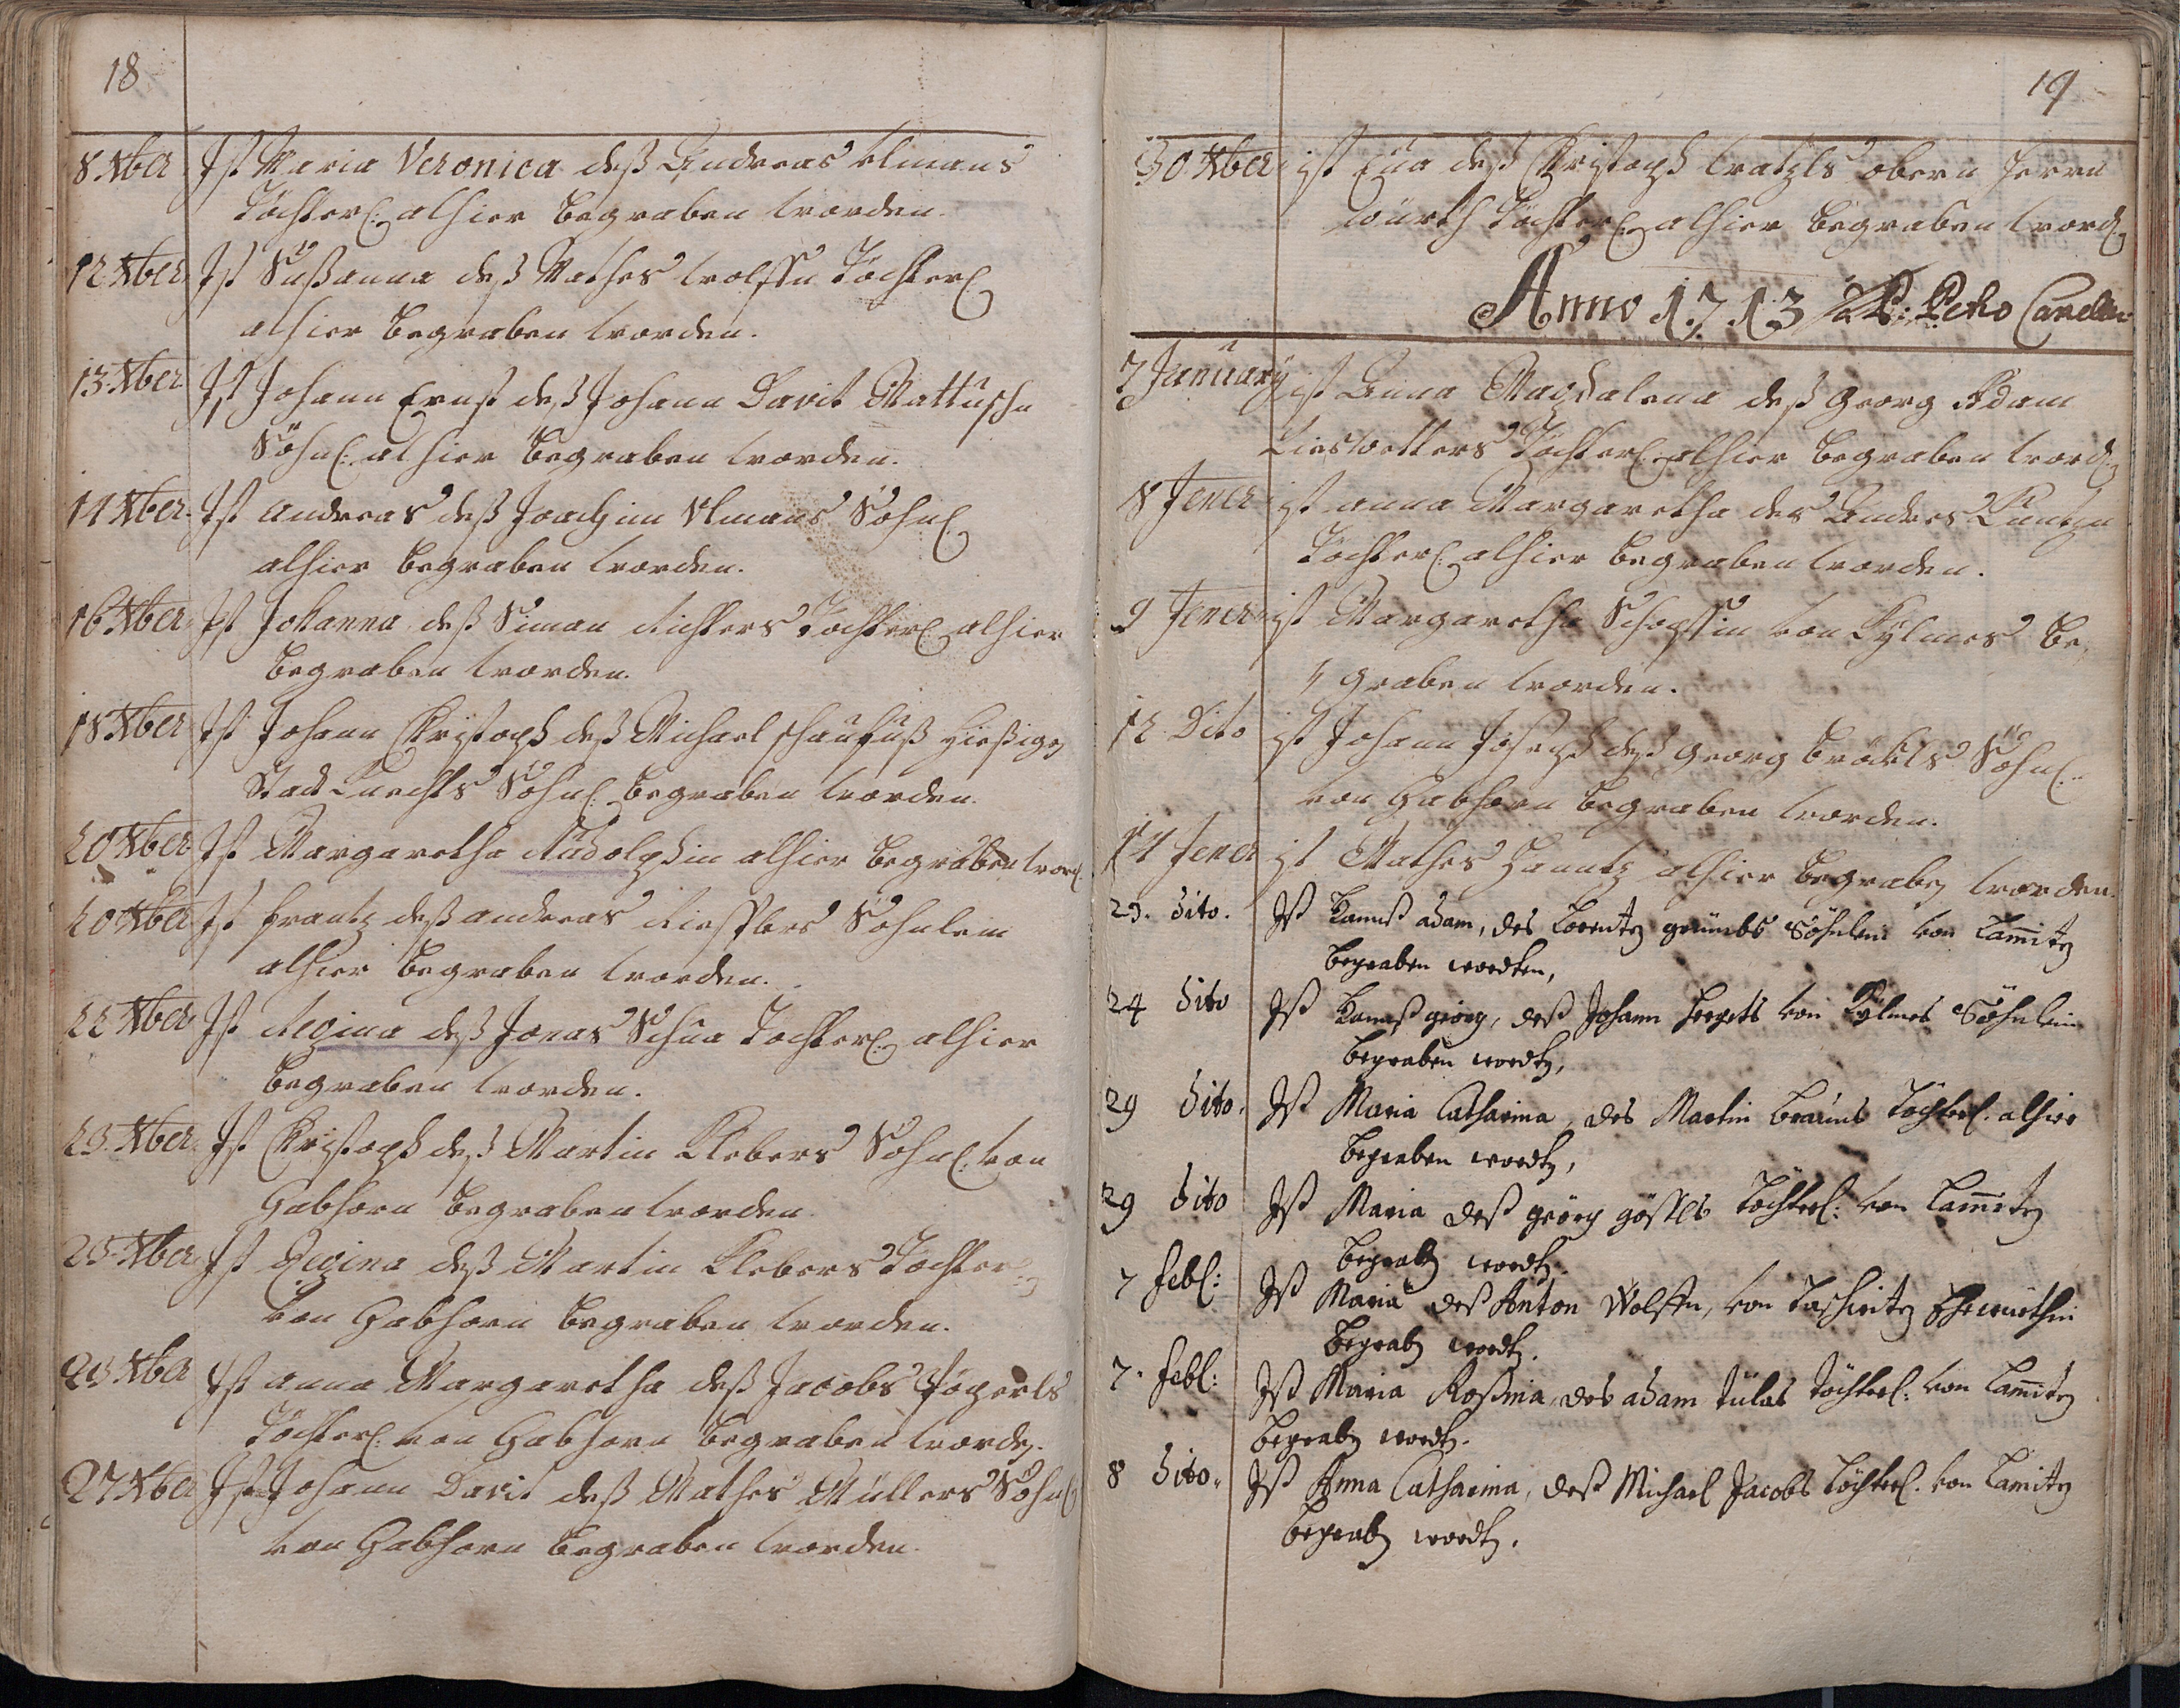 18
8 Xber Ist Maria Veronica deß Andreas Ulmans
Töchterl: alhier begraben worden.
12 Xber Ist Sußanna deß Mathes Wolffn Töchterl
alhier begraben worden.
13 Xber Ist Johann Ernst deß Johann Davit Mattuschn
Söhnl: alhier begraben worden.
14 Xber Ist Andreas deß Joachim Ulmans Söhnl
alhier begraben worden.
16 Xber Ist Johanna deß Siman Richters Tochterl: alhier
begraben worden.
18 Xber Ist Johann Christoph deß Michael Schaufuß hießigen
Stadt Knechts Söhnl: begraben worden.
20 Xber Ist Margaretha Rudolphin alhier begraben word.
20 Xber Ist Frantz deß Andreas Söhnlein
alhier begraben worden.
22 Xber Ist Regina deß Jonas Tochterl: alhier
begraben worden.
23 Xber Ist Christoph deß Martin Klebers Söhnl: von
Gabhorn begraben worden.
25 Xber Ist Regina deß Martin Klebers Töchter:
von Gabhorn begraben worden.
25 Xber Ist Anna Margaretha deß Jacobs
Töchterl: von Gabhorn begraben worden.
27 Xber Ist Johann Davit deß Mathes Müllers Söhnl
von Gabhorn begraben worden.
19
30 Xber ist Eua deß Christoph obern
Töchterl: alhier begraben word:
Anno 1713
7 January ist Anna Magdalena deß Georg Adam
Töchterl: alhier begraben word:
8 Jener ist Anna Margaretha des Andres
Töchterl: alhier begraben worden.
9 Jener ist Margaretha von Kÿlmes be,
graben worden.
12 Dito ist Johann Joseph deß Georg Söhnl:
von Gabhorn begraben worden.
14 Jener ist Mathes alhier begraben worden.
23. dito. Ist Adam, des Lorentz Söhnlein von Lamitz
begraben wordten,
24 dito Ist Georg, deß Johann von Kÿlmes Söhnlein
begraben wordten,
29 dito. Ist Maria Catharina, des Martin Brauns Töchterl. alhier
begraben wordten,
29 dito Ist Maria deß Georg Töchterl: von Lamitz
begraben wordten.
7 Febl: Ist Maria deß Anton Wolffn, von Taschwitz Ehewürthin
begraben wordten.
7. Febl: Ist Maria Rosina, des Adam Töchterl: von Lamitz
begraben wordten.
8 dito. Ist Anna Catharina, deß Michael Jacobs Töchterl. von Lamitz
begraben wordten.